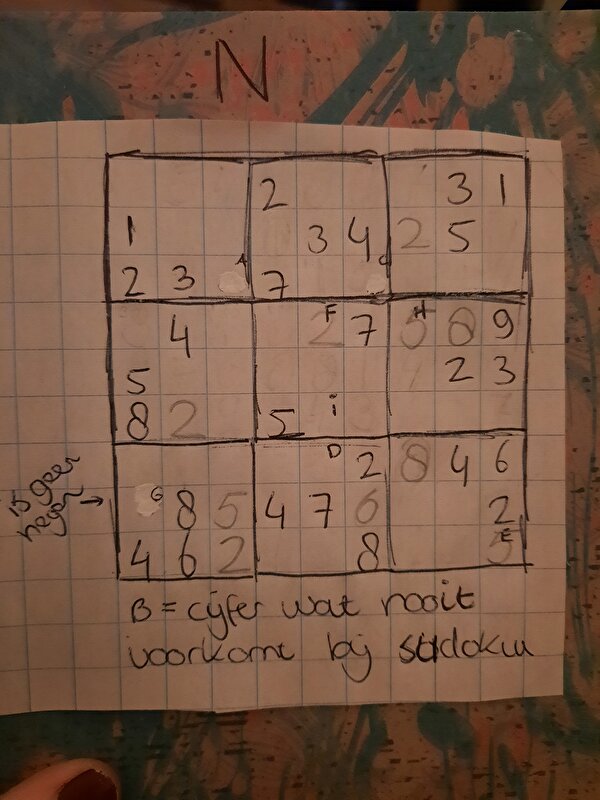 N
2 3 1
1 3 4 2 5
2 3 A 7 C
4 F 2 7 H 5 8 9
5 2 3
8 2 5 i
D 2 8 4 6
is geen negen → G 8 5 4 7 6 2
4 6 2 8 5 E
B = cijfer wat nooit
voorkomt bij sudoku